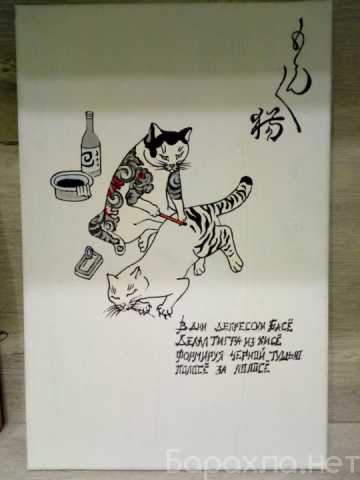 もん〱
猫
В ДНИ ДЕПРЕССИИ БАСЁ
ДЕЛАЛ ТИГРА ИЗ КИСЁ
ФОРМИРУЯ ЧЕРНОЙ ТУШЬЮ
ПОЛОСЁ ЗА ПОЛОСЁ
Барахла.нет